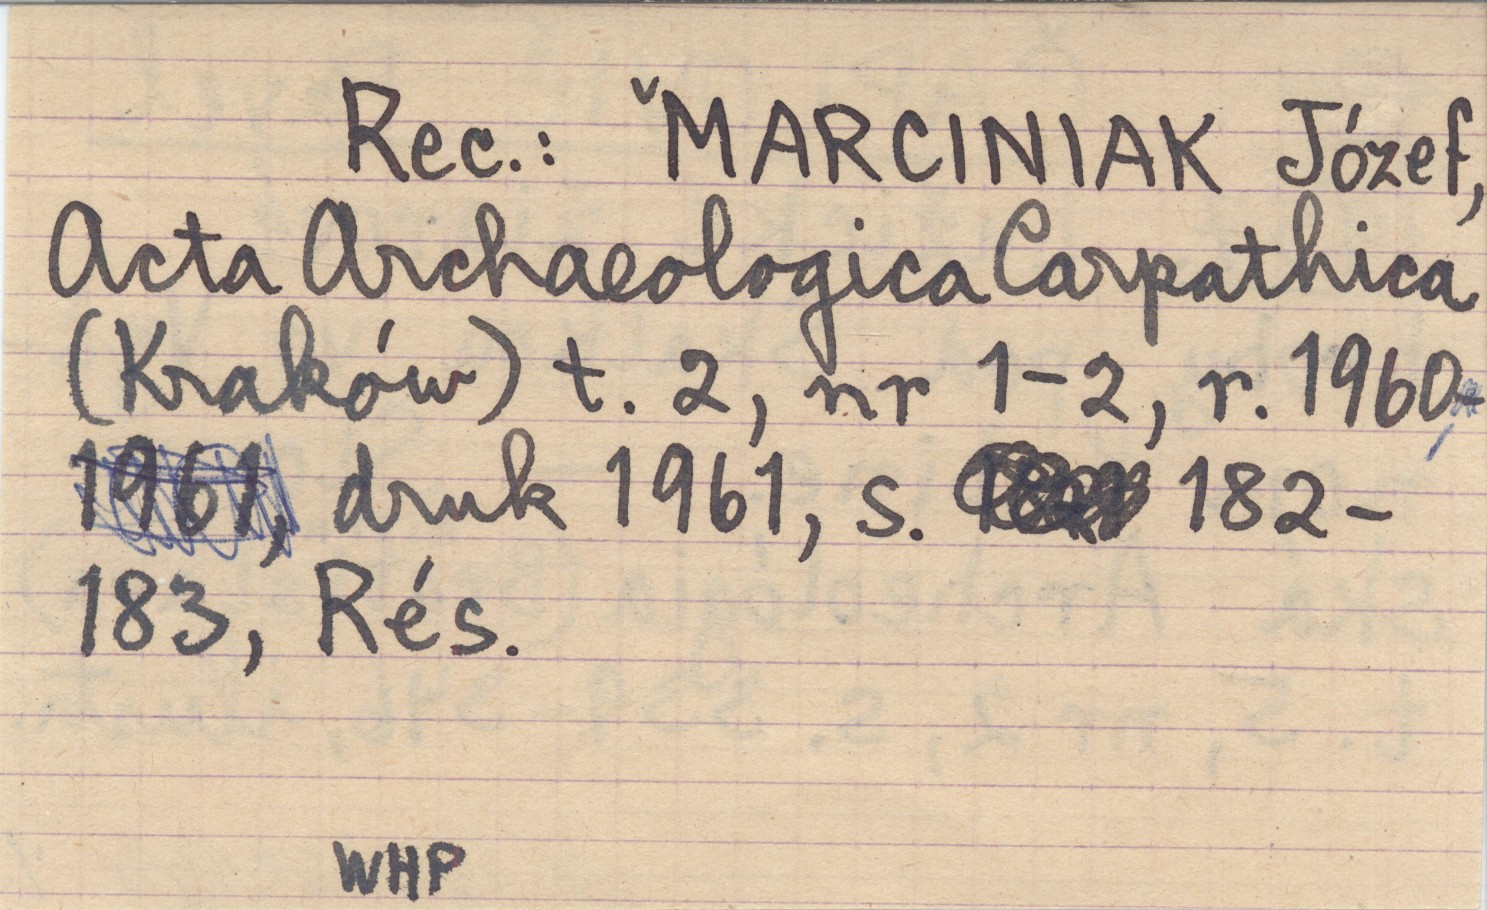 Rec.: ˇMARCINIAK Józef,
Acta Archaeologica Carpathica
(Kraków) t. 2, nr 1-2, r. 1960,
druk 1961, s. 182-
183, Rés.
WHP